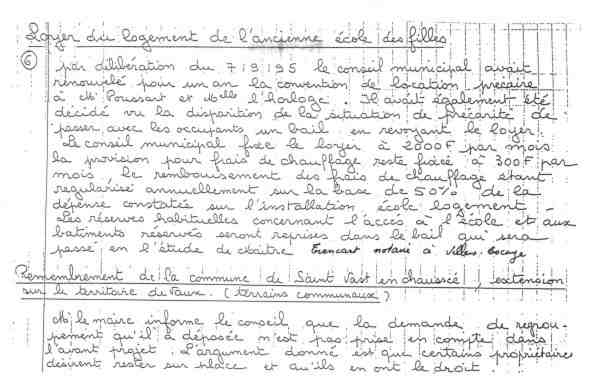 Loyer du logement de l'ancienne école des filles
⑥ par délibération du 7.9.95 le conseil municipal avait
renouvelé pour un an la convention de location précaire
à Mr Poussart et Melle l'horloge. Il avait également été
décidé vu la disparition de la situation de précarité de
passer avec les occupants un bail en revoyant le loyer.
Le conseil municipal fixe le loyer à 2000F par mois
la provision pour frais de chauffage reste fixée à 300F par
mois, le remboursement des frais de chauffage étant
regularisé annuellement sur la base de 50% de la
dépense constatée sur l'installation école logement.
Les réserves habituelles concernant l'accès à l'école et aux
batiments réservés seront reprises dans le bail qui sera
passé en l'étude de Maitre Francart notaire à Villers-Bocage
Remembrement de la commune de Saint Vast en chaussée, extension
sur le territoire de Vaux. (terrains communaux)
M. le maire informe le conseil que la demande de regrou-
pement qu'il a déposée n'est pas prise en compte dans
l'avant projet. L'argument donné est que certains propriétaires
désirent rester sur place et qu'ils en ont le droit.